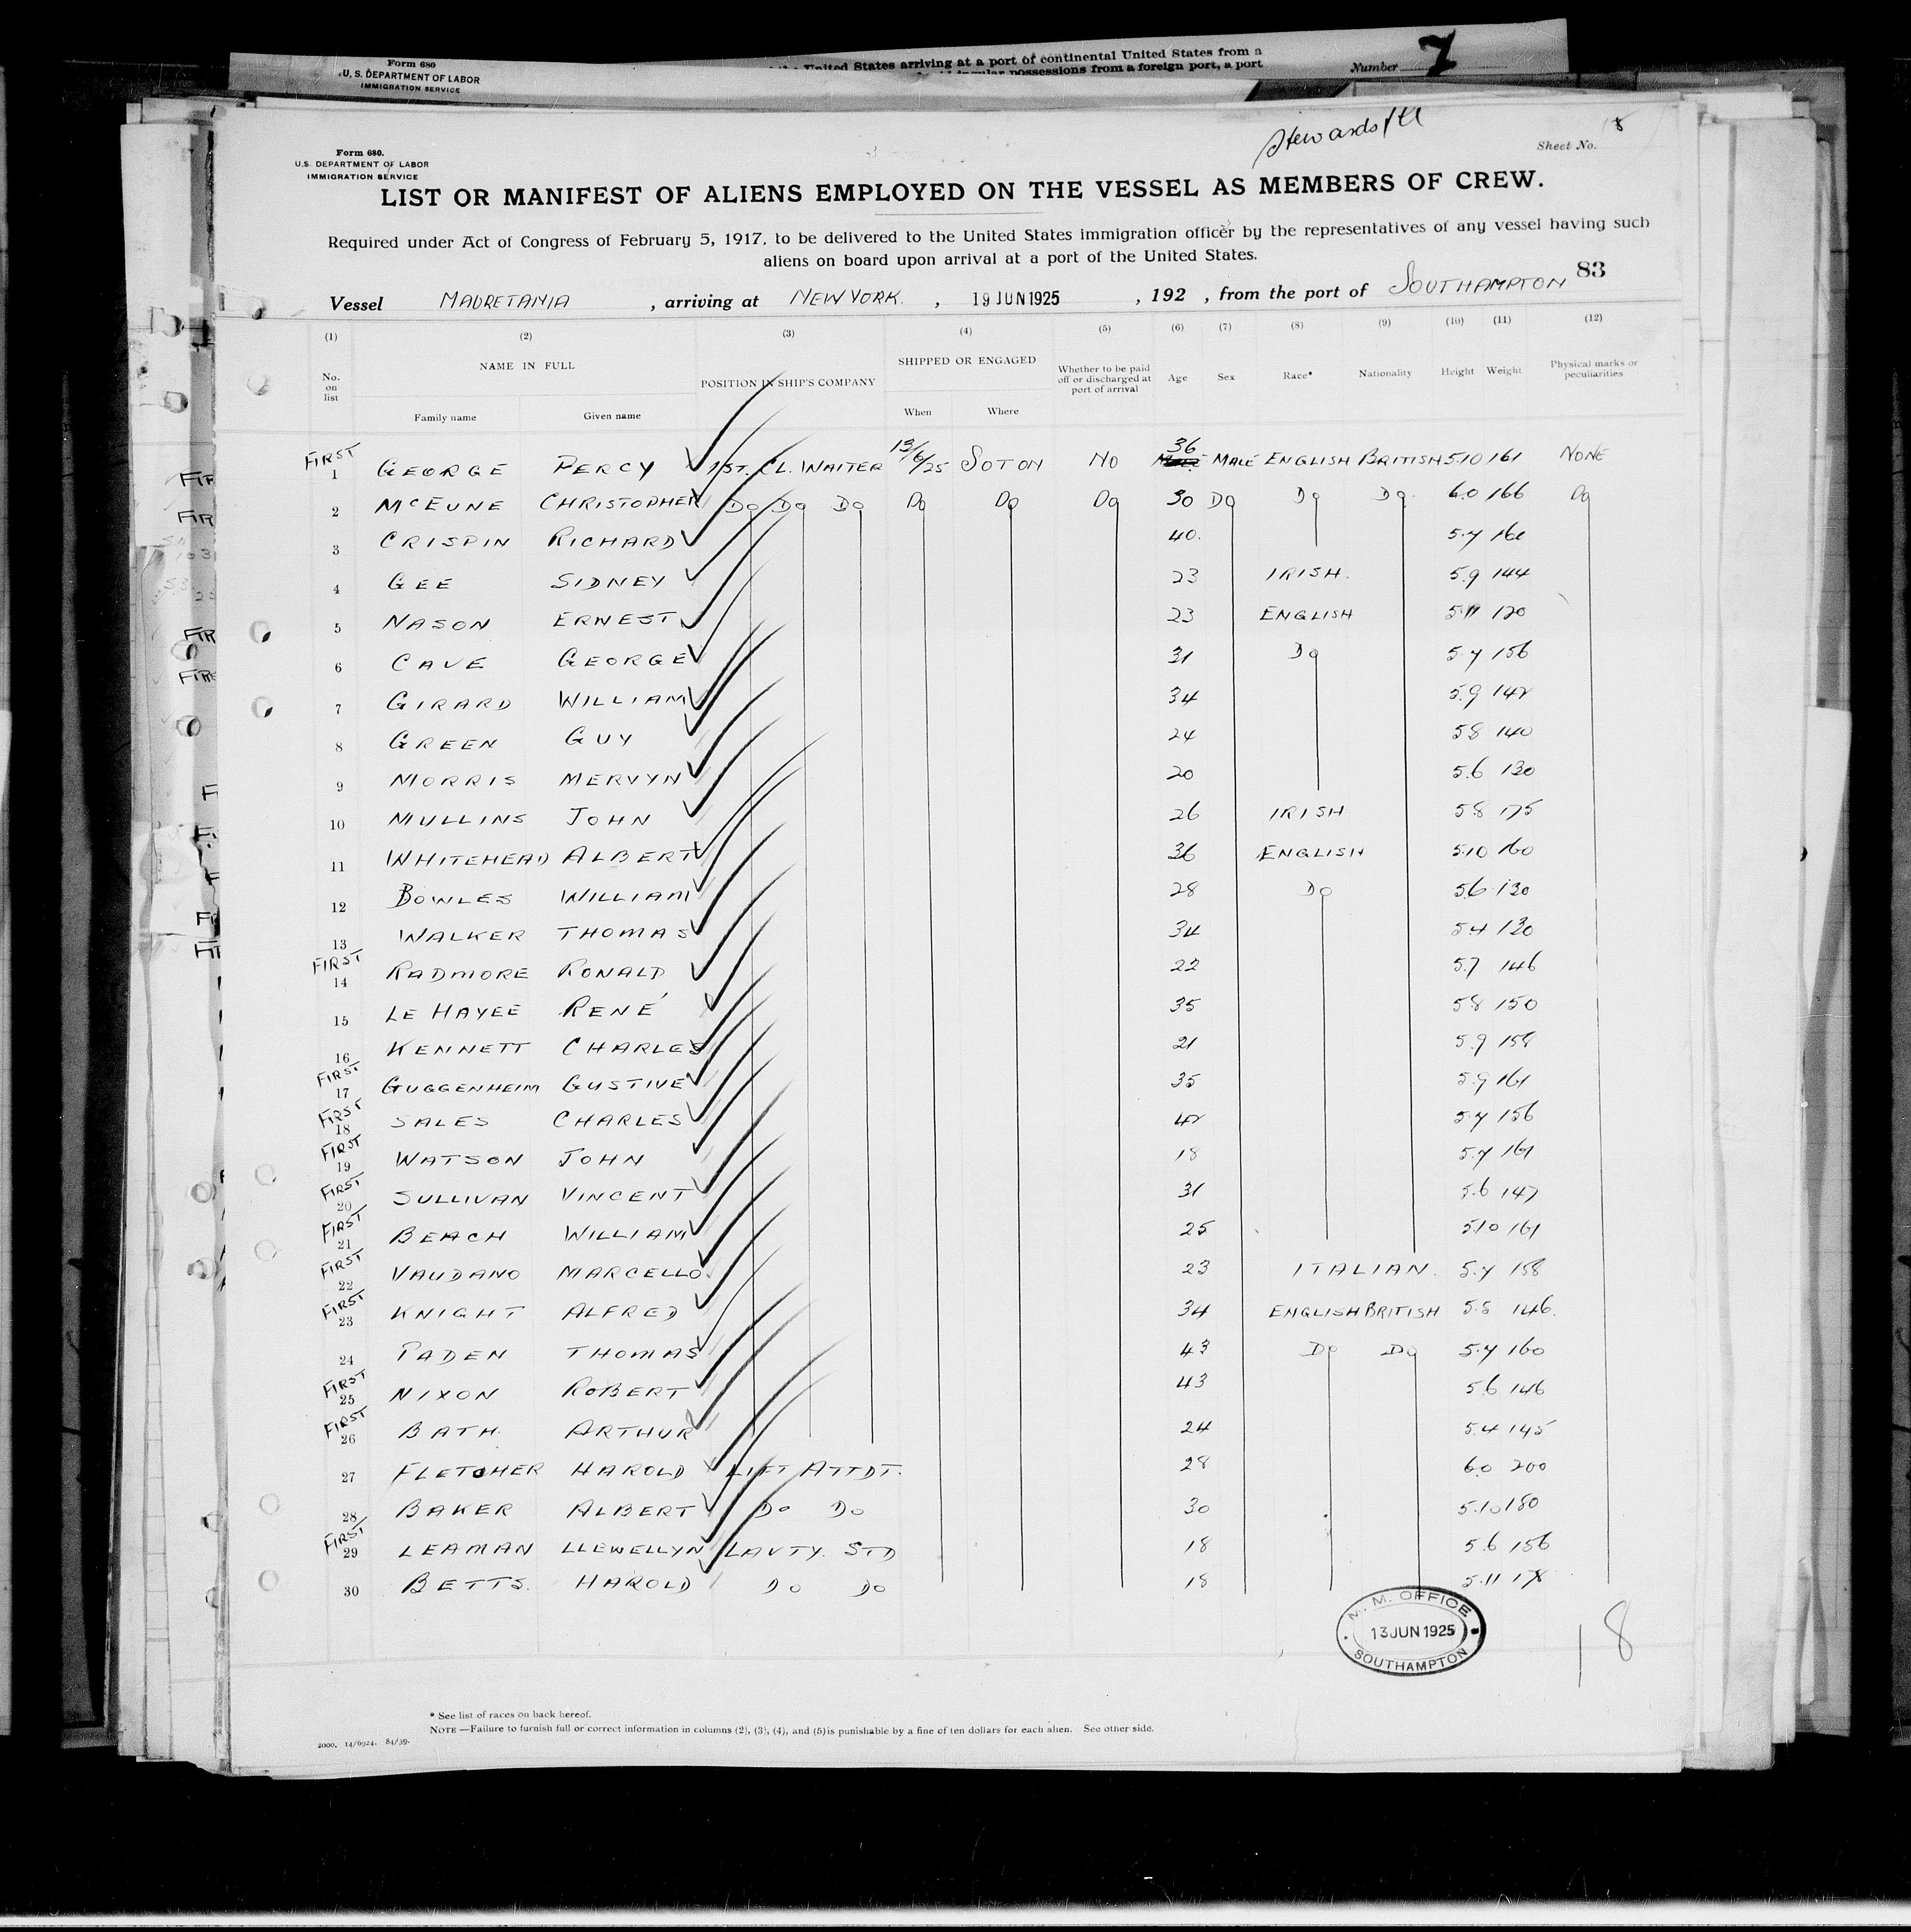 Form 680
U. S. DEPARTMENT OF LABOR
IMMIGRATION SERVICE
United States arriving at a port of continental United States from a
possessions from a foreign port, a port
Number 7
Stewards
Form 680.
U.S. DEPARTMENT OF LABOR
IMMIGRATION SERVICE
Sheet No. 8
LIST OR MANIFEST OF ALIENS EMPLOYED ON THE VESSEL AS MEMBERS OF CREW.
Required under Act of Congress of February 5, 1917, to be delivered to the United States immigration officer by the representatives of any vessel having such
aliens on board upon arrival at a port of the United States.
83
Vessel MAURETANIA, arriving at NEW YORK., 19 JUN 1925, 192 , from the port of SOUTHAMPTON
(1) (2) (3) (4) (5) (6) (7) (8) (9) (10) (11) (12)
No. on list NAME IN FULL POSITION IN SHIP'S COMPANY SHIPPED OR ENGAGED Whether to be paid off or discharged at port of arrival Age Sex Race* Nationality Height Weight Physical marks or peculiarities
Family name Given name When Where
FIRST 1 GEORGE PERCY 1ST. CL. WAITER 13/6/25 SOTON NO 36 MALE ENGLISH BRITISH 5.10 161 NONE
2 McEUNE CHRISTOPHER Do Do Do Do Do Do 30 Do Do Do 6.0 166 Do
3 CRISPIN RICHARD 40. 5.7 160
4 GEE SIDNEY 23 IRISH. 5.9 144
5 NASON ERNEST 23 ENGLISH 5.11 120
6 CAVE GEORGE 31 Do 5.7 156
7 GIRARD WILLIAM 34 5.9 142
8 GREEN GUY 24 5.8 140
9 MORRIS MERVYN 20 5.6 130
10 MULLINS JOHN 26 IRISH 5.8 175
11 WHITEHEAD ALBERT 36 ENGLISH 5.10 160
12 BOWLES WILLIAM 28 Do 5.6 130
13 WALKER THOMAS 34 5.4 130
FIRST 14 RADMORE RONALD 22 5.7 146
15 LE HAYEE RENÉ 35 5.8 150
16 KENNETT CHARLES 21 5.9 158
FIRST 17 GUGGENHEIM GUSTIVE 35 5.9 161
FIRST 18 SALES CHARLES 42 5.7 156
FIRST 19 WATSON JOHN 18 5.7 161
FIRST 20 SULLIVAN VINCENT 31 5.6 147
FIRST 21 BEACH WILLIAM 25 5.10 161
FIRST 22 VAUDANO MARCELLO. 23 ITALIAN. 5.7 158
FIRST 23 KNIGHT ALFRED 34 ENGLISH BRITISH 5.8 146.
24 PADEN THOMAS 43 Do Do 5.7 160
FIRST 25 NIXON ROBERT 43 5.6 146
FIRST 26 BATH. ARTHUR 24 5.4 145
27 FLETCHER HAROLD LIFT ATTDT. 28 6.0 200
28 BAKER ALBERT Do Do 30 5.10 180
FIRST 29 LEAMAN LLEWELLYN LAVTY. STD 18 5.6 156
30 BETTS. HAROLD Do Do 18 5.11 178
M. M. OFFICE
13 JUN 1925
SOUTHAMPTON
18
* See list of races on back hereof.
NOTE—Failure to furnish full or correct information in columns (2), (3), (4), and (5) is punishable by a fine of ten dollars for each alien. See other side.
2000. 14/6924. 84/39.